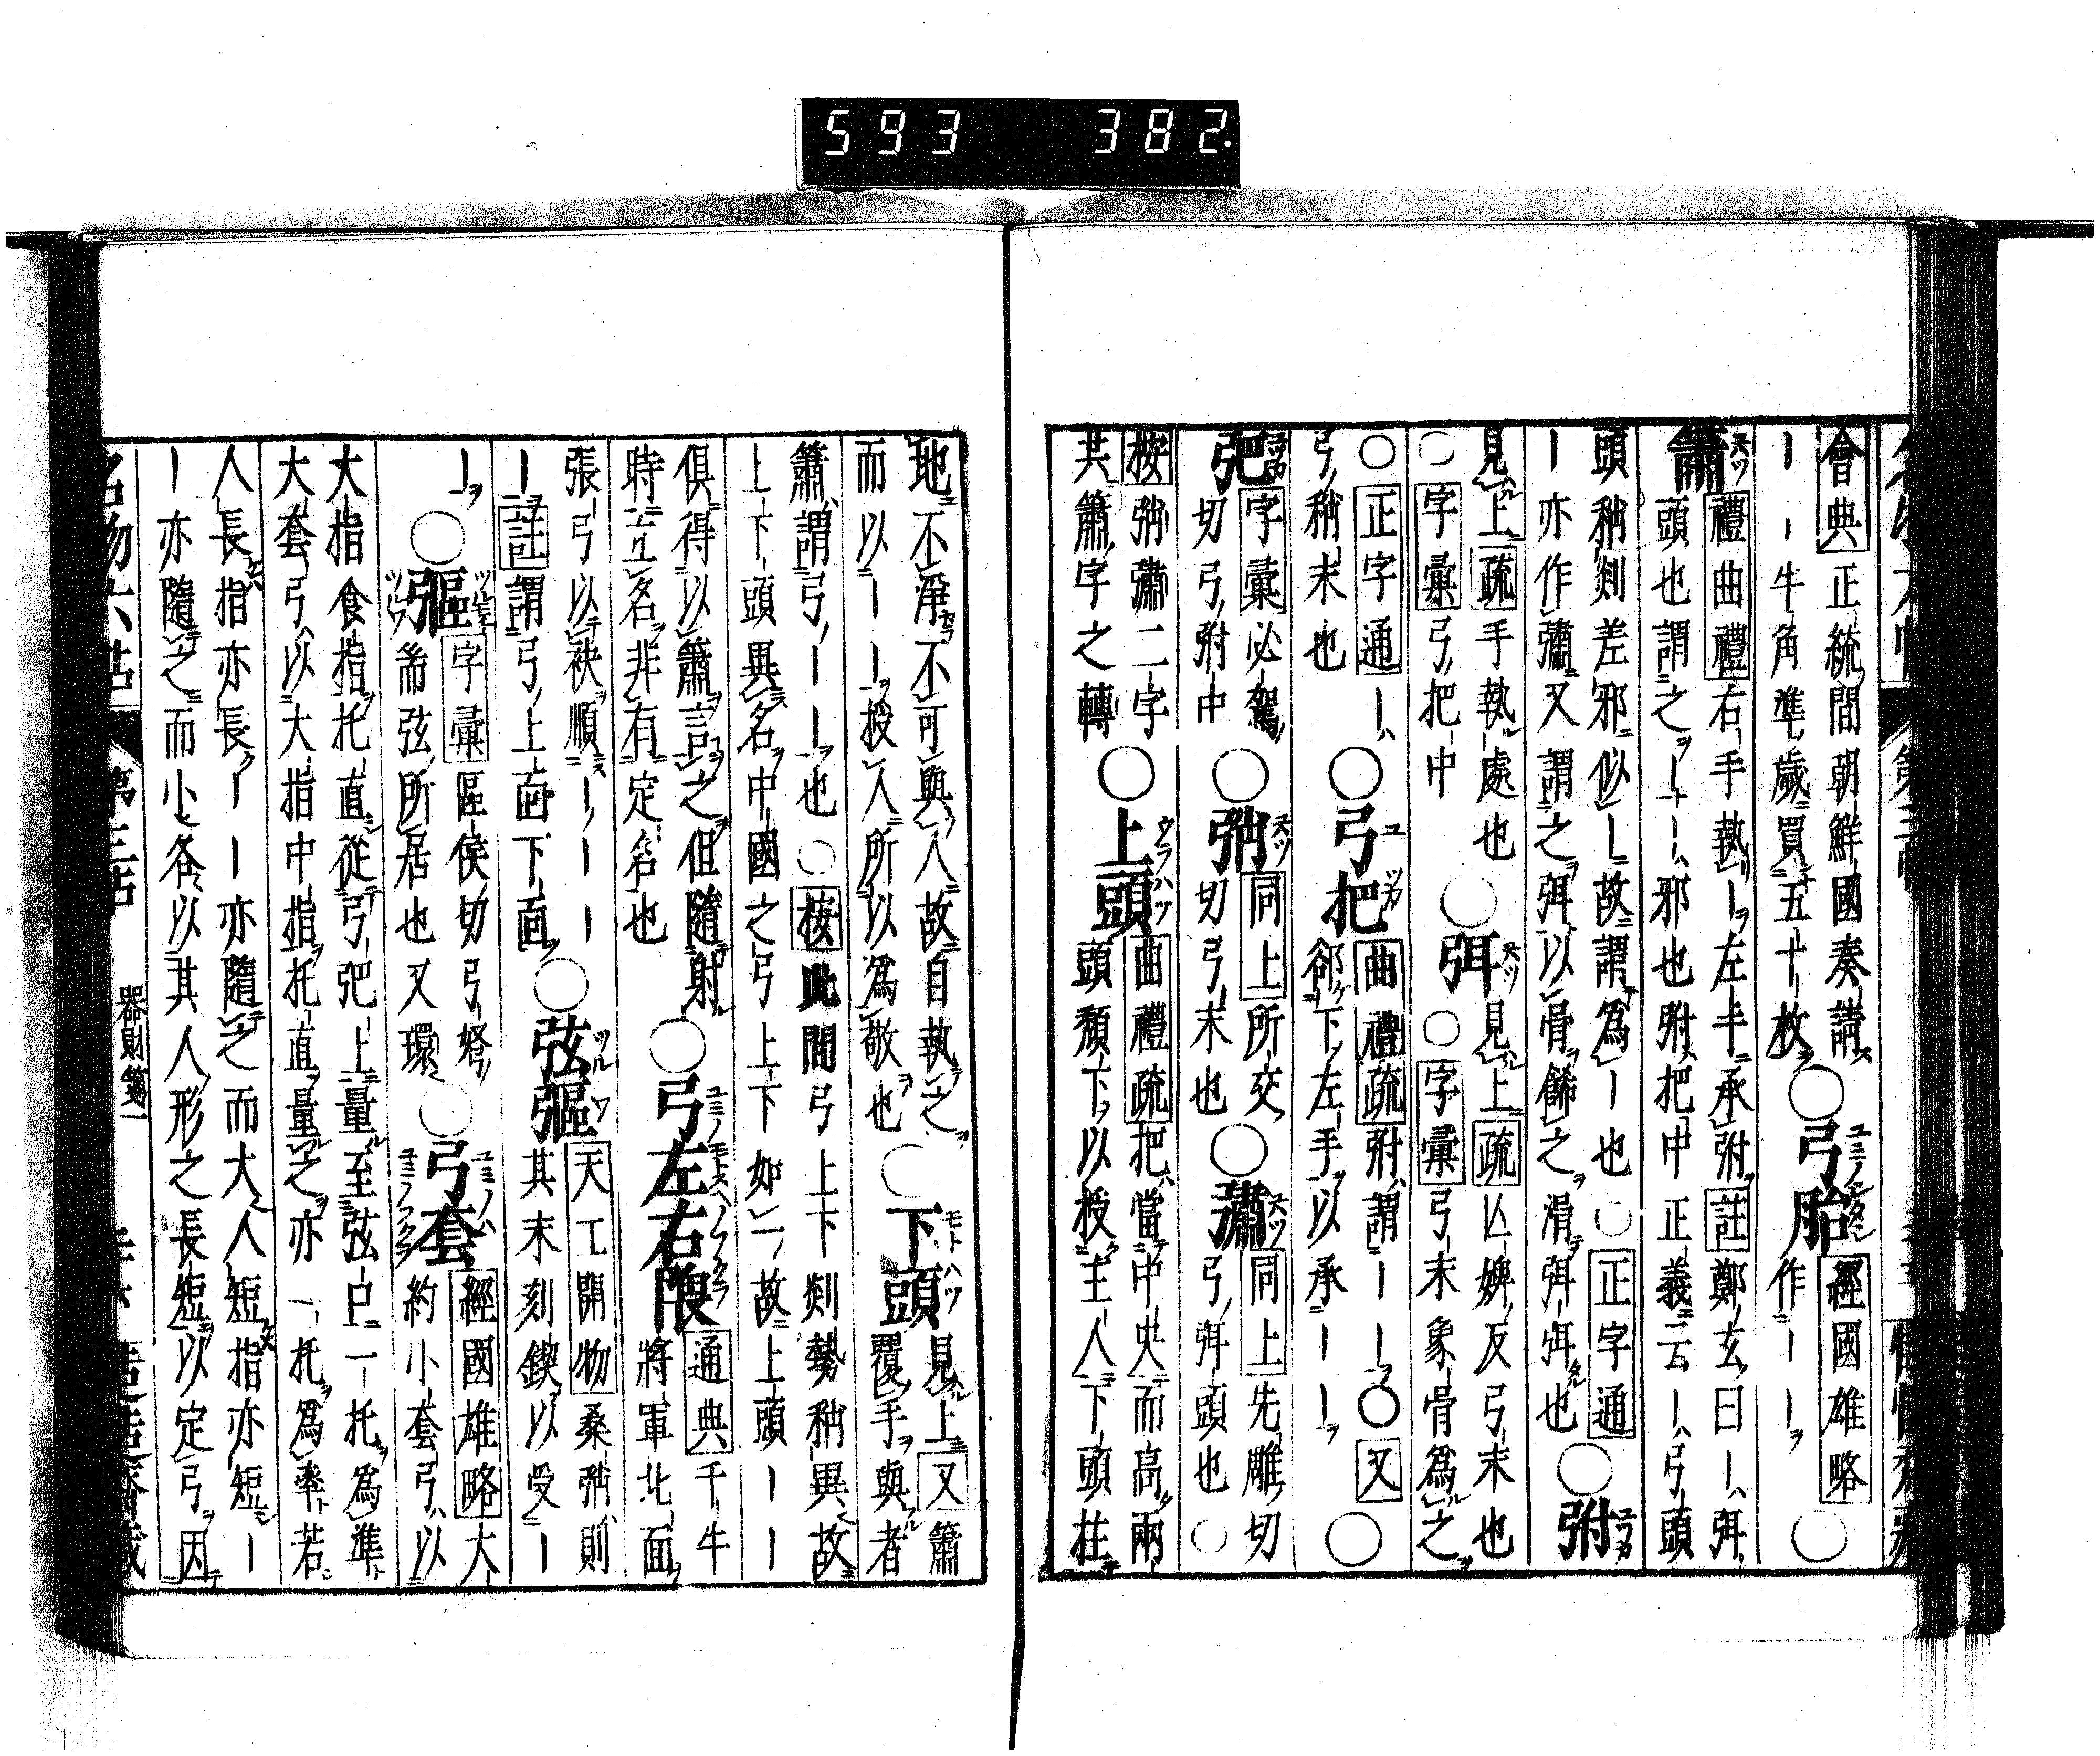 593 382.
會典正統間朝鮮國奏請
丨丨牛角準歲買五十枚
○弓胎
經國雄略
作丨丨
○
簫
禮曲禮右手執丨左手承弣註鄭玄曰丨弭
頭也謂之丨丨邪也弣把中正義云丨弓頭
頭稍剡差邪似丨故謂爲丨也○正字通
丨亦作彇又謂之弭以骨飾之滑弭弭也
○弣
見上疏手執處也
○字彙弓把中
○弭
見上疏亾婢反弓末也
○字彙弓末象骨爲之
○正字通丨
弓稍末也
○弓把
曲禮疏弣謂丨丨○又
郤下左手以承丨丨
○
弝
字彙必駕
切弓弣中
○弰
同上所交
切弓末也
○彇
同上先雕切
弓弭頭也○
按弰彇二字
共簫字之轉
○上頭
曲禮疏把當中央而高兩
頭頹下以授主人下頭拄
地不淨不可與人故自執之
而以丨丨授人所以爲敬也
○下頭
見上又簫
覆手與者
簫謂弓丨丨也○按此間弓上下剡勢稍異故
上下頭異名中國之弓上下如一故上頭丨丨
俱得以簫言之但隨射
時立名非有定名也
○弓左右隈
通典千牛
將軍北面
張弓以袂順丨丨丨
丨註謂弓上面下面
○弦彄
天工開物桑弰則
其末刻鍥以受丨
丨
○彄
字彙區侯切弓弩
耑弦所居也又環
○弓套
經國雄略大
約小套弓以
大指食指托直從弓弝上量至弦巳一托爲準
大套弓以大指中指托直量之亦一托爲率若
人長指亦長丨丨亦隨之而大人短指亦短丨
丨亦隨之而小各以其人形之長短以定弓因
名物六帖
第三帖
器財箋一